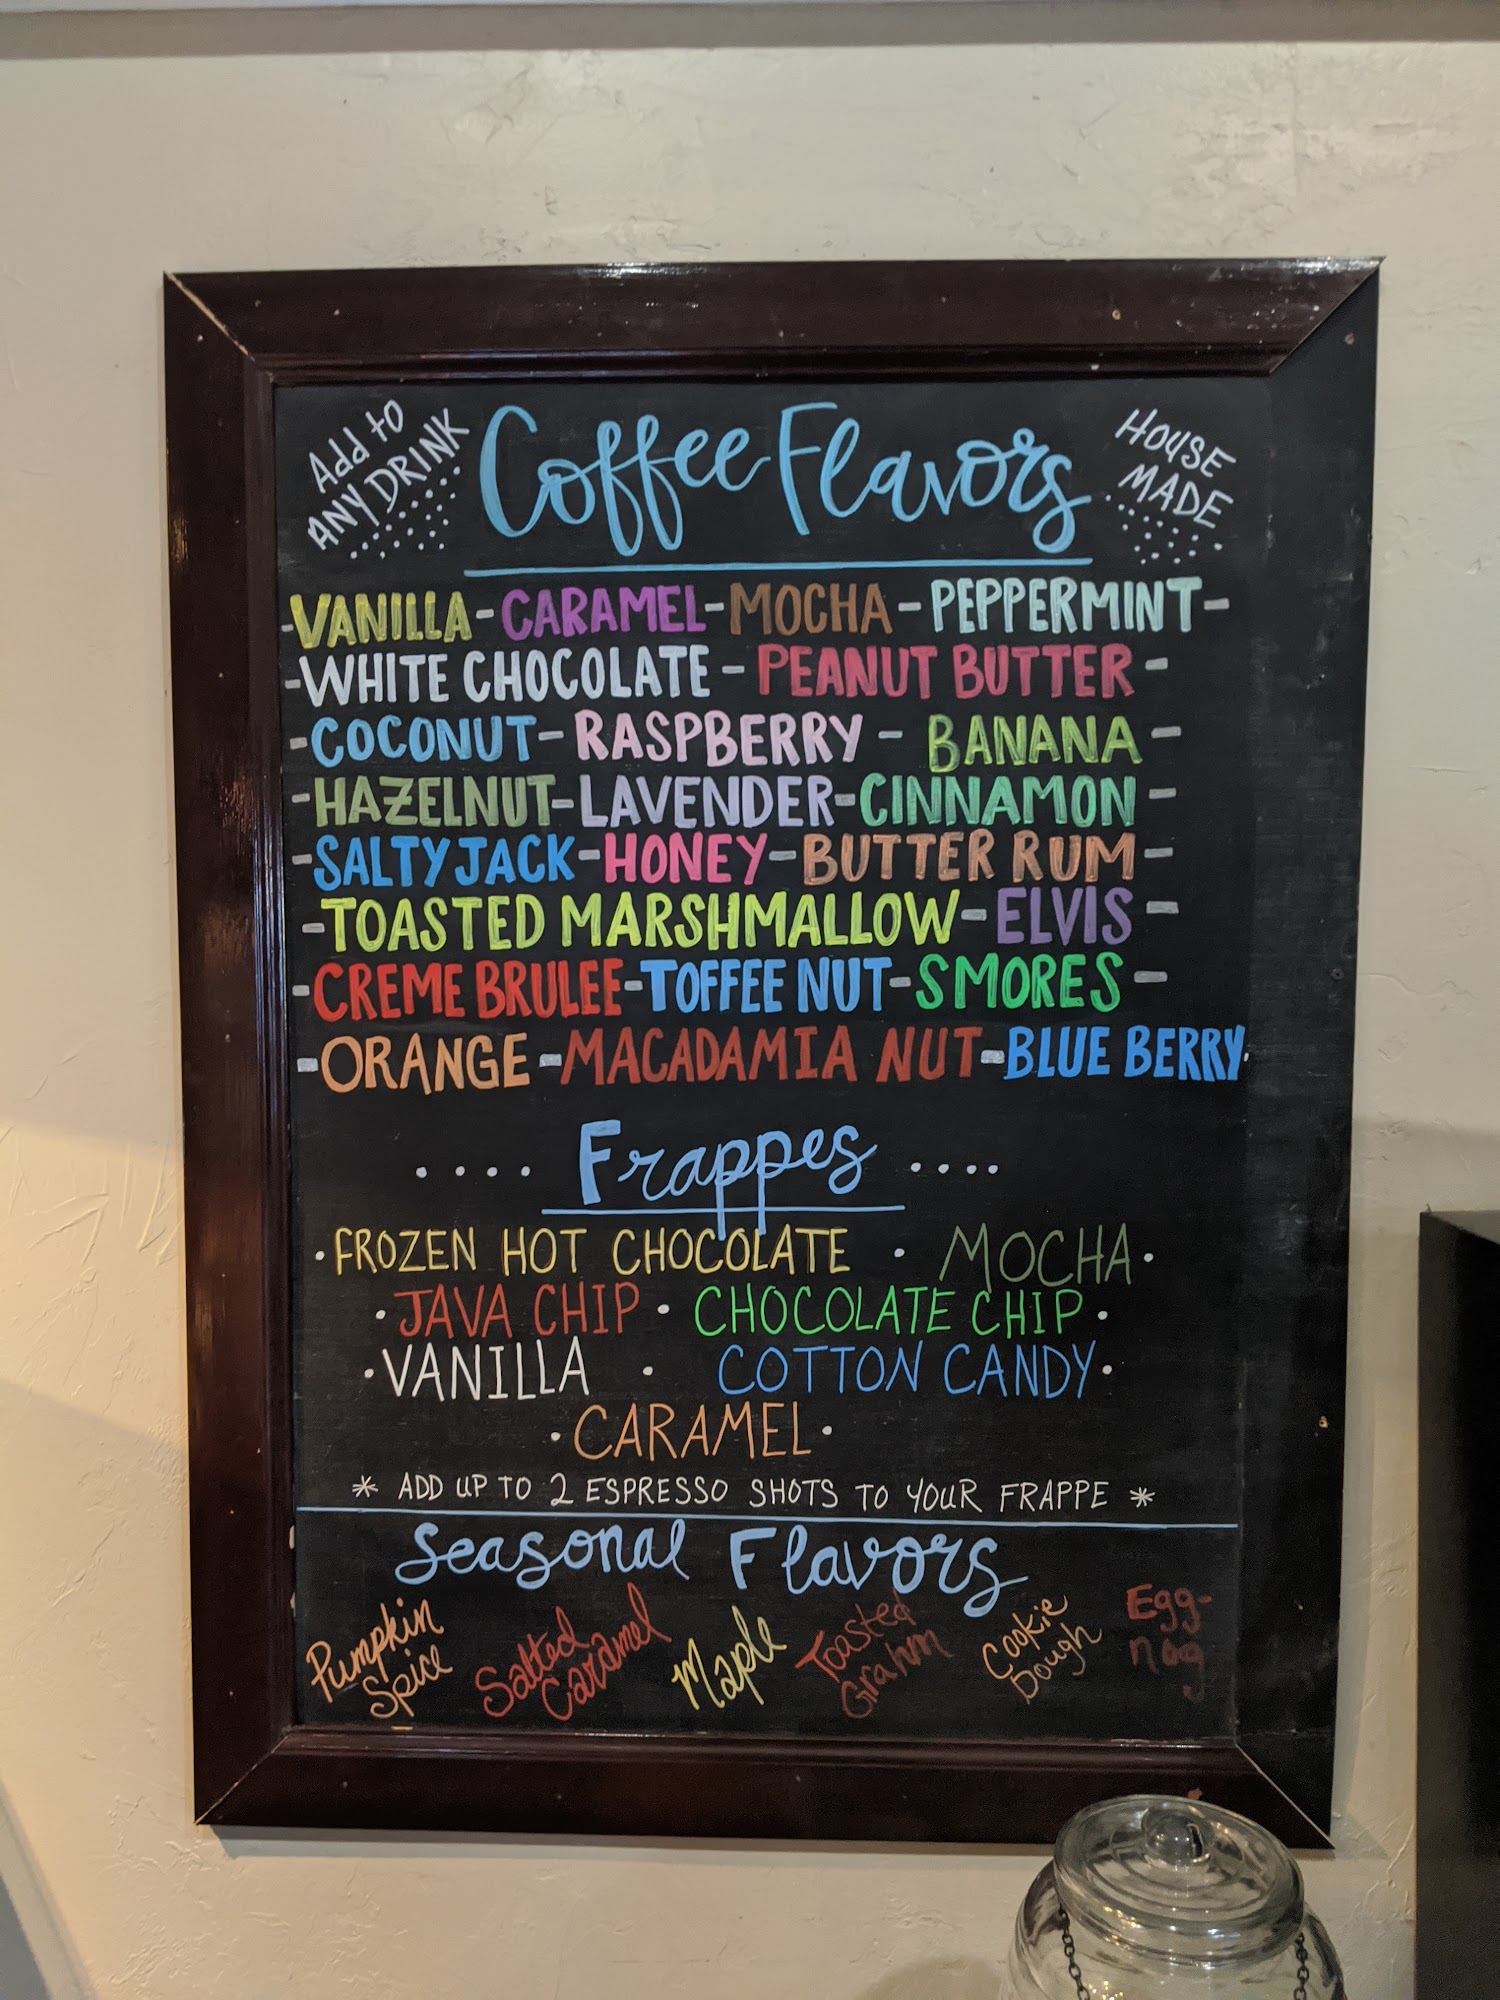 Add to
ANY DRINK
Coffee Flavors
HOUSE
MADE
-VANILLA-CARAMEL-MOCHA-PEPPERMINT-
-WHITE CHOCOLATE-PEANUT BUTTER-
-COCONUT-RASPBERRY-BANANA-
-HAZELNUT-LAVENDER-CINNAMON-
-SALTY JACK-HONEY-BUTTER RUM-
-TOASTED MARSHMALLOW-ELVIS-
-CREME BRULEE-TOFFEE NUT-SMORES-
-ORANGE-MACADAMIA NUT-BLUE BERRY-
.... Frappes ....
• FROZEN HOT CHOCOLATE • MOCHA •
• JAVA CHIP • CHOCOLATE CHIP •
• VANILLA • COTTON CANDY •
• CARAMEL •
* ADD UP TO 2 ESPRESSO SHOTS TO YOUR FRAPPE *
Seasonal Flavors
Pumpkin
Spice
Salted
Caramel
Maple
Toasted
Grahm
Cookie
Dough
Egg-
nog